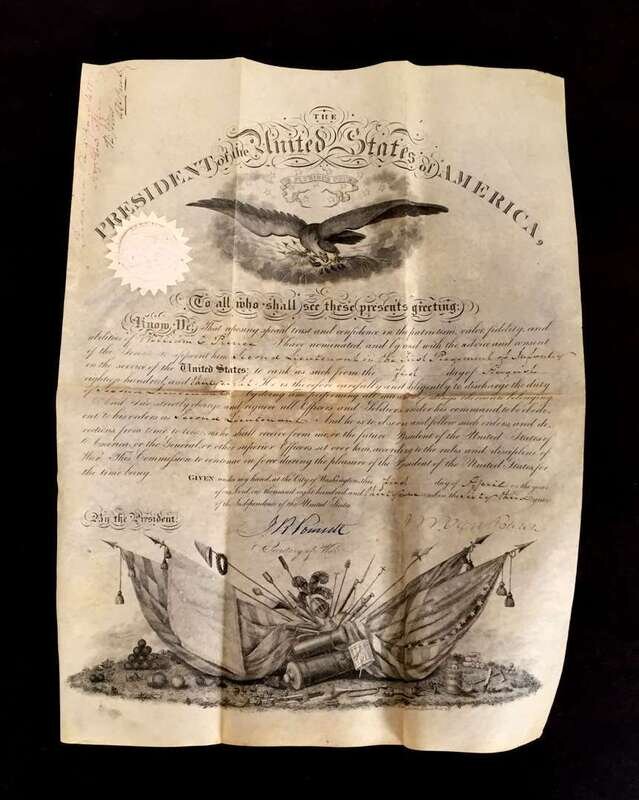 THE
PRESIDENT of the United States of AMERICA,
E PLURIBUS UNUM
To all who shall see these presents greeting:
Know Ye, That reposing special trust and confidence in the patriotism, valor, fidelity, and
abilities of William I have nominated, and by and with the advice and consent
of the Senate, do appoint him Second Lieutenant in the First Regiment of Infantry
in the service of the United States: to rank as such from the first day of
eighteen hundred and He is therefore carefully and diligently to discharge the duty
of Second Lieutenant by doing and performing all manner of things thereunto belonging.
And I do strictly charge and require all Officers and Soldiers under his command to be obedi-
ent to his orders as Second Lieutenant. And he is to observe and follow such orders and di-
rections from time to time, as he shall receive from me, or the future President of the United States of
America, or the General or other superior Officers set over him, according to the rules and discipline of
War. This Commission to continue in force during the pleasure of the President of the United States for
the time being.
GIVEN under my hand, at the City of Washington, this first day of April in the year
of our Lord, one thousand eight hundred and and in the Sixty third year
of the Independence of the United States.
By the President.
M Van Buren
J R Poinsett
Secretary of War.